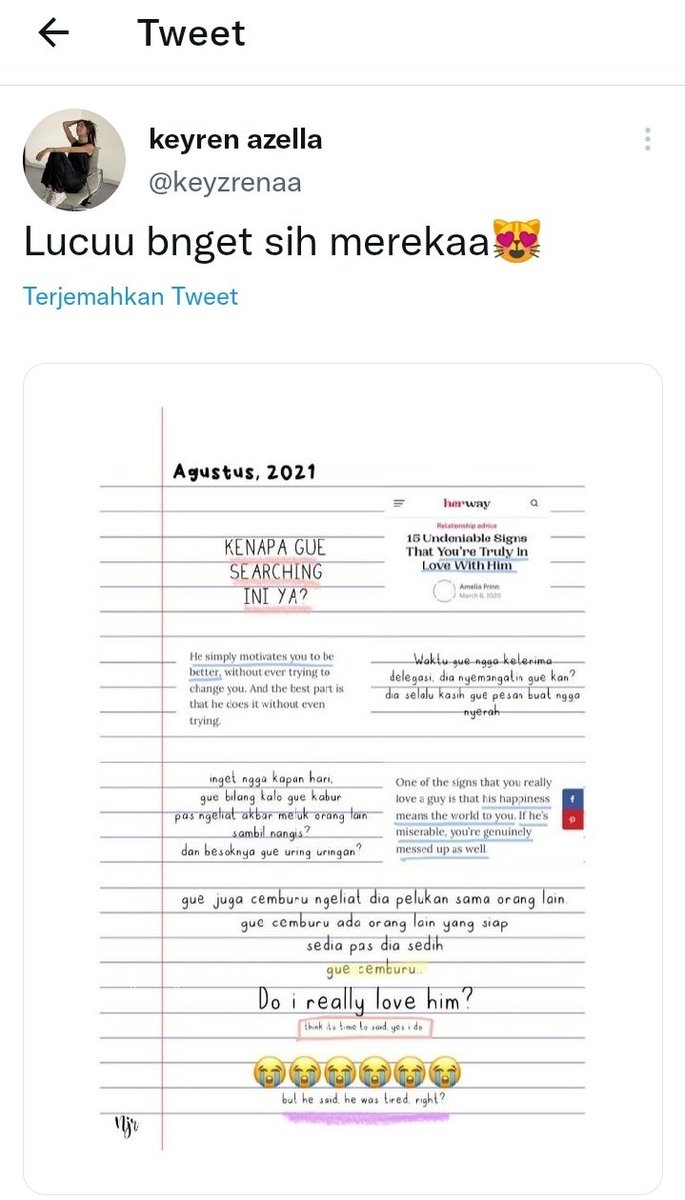 Tweet
keyren azella
@keyzrenaa
Lucuu bnget sih merekaa😻
Terjemahkan Tweet
Agustus, 2021
KENAPA GUE
SEARCHING
INI YA?
herway
Relationship advice
15 Undeniable Signs
That You're Truly In
Love With Him
Amelia Prinn
March 6, 2020
He simply motivates you to be
better, without ever trying to
change you. And the best part is
that he does it without even
trying.
Waktu gue ngga keterima
delegasi, dia nyemangatin gue kan?
dia selalu kasih gue pesan buat ngga
nyerah
inget ngga kapan hari,
gue bilang kalo gue kabur
pas ngeliat akbar meluk orang lain
sambil nangis?
dan besoknya gue uring uringan?
One of the signs that you really
love a guy is that his happiness
means the world to you. If he's
miserable, you're genuinely
messed up as well
gue juga cemburu ngeliat dia pelukan sama orang lain.
gue cemburu ada orang lain yang siap
sedia pas dia sedih
gue cemburu..
Do i really love him?
think its time to said, yes i do
😭😭😭😭😭😭
but he said, he was tired, right?